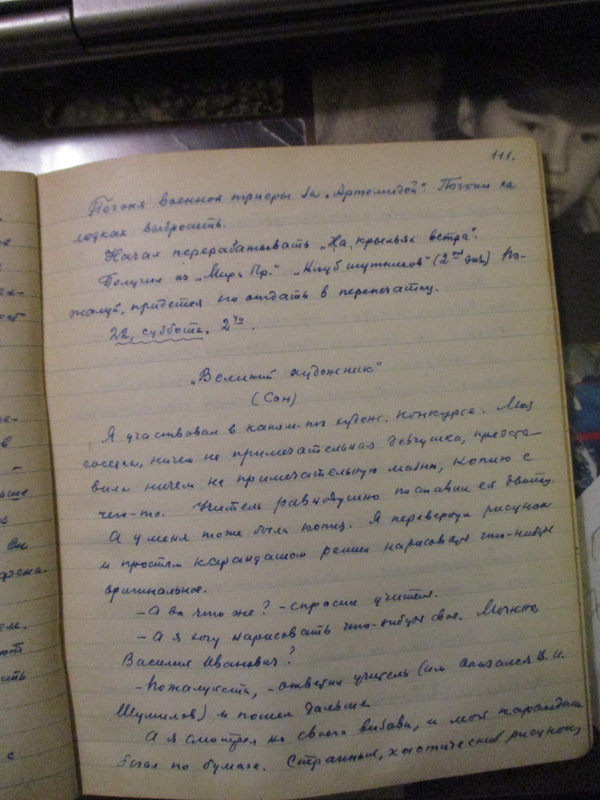 111.
Погоня военной триеры за „Артемидой“. Погони на
лодках выбросить.
Начал перерабатывать „На крыльях ветра“.
Получил от „Мира Пр.“ „Клуб шутников“ (2ой экз.) По-
жалуй, придется его отдать в перепечатку.
22, суббота. 2 ч.
„Великий художник“
(Сон)
Я участвовал в каком-то худож. конкурсе. Моя
соседка, ничем не примечательная девчушка, предста-
вила ничем не примечательную мазню, копию с
чего-то. Учитель равнодушно поставил ей двойку.
А у меня тоже была копия. Я перевернул рисунок
и простым карандашом решил нарисовать что-нибудь
оригинальное.
– А вы что же? – спросил учитель.
– А я хочу нарисовать что-нибудь свое. Можно,
Василий Иванович?
– Пожалуйста, – ответил учитель (им оказался В. И.
Шумилов) и пошел дальше.
А я смотрел на своего, и мой карандаш
бегал по бумаге. Странные, хаотические рисунки,